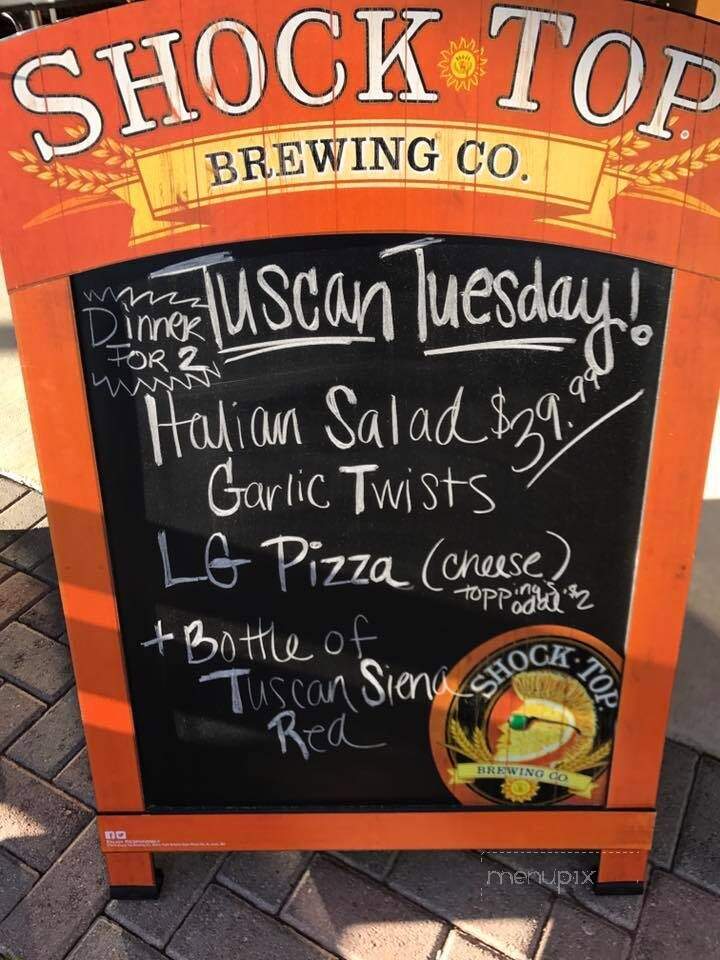 SHOCK TOP
BREWING CO.
Dinner
FOR 2
Tuscan Tuesday!
Italian Salad $39.99
Garlic Twists
LG Pizza (cheese)
toppings $2
addl
+ Bottle of
Tuscan Siena
Red
SHOCK TOP
BREWING CO.
menupix